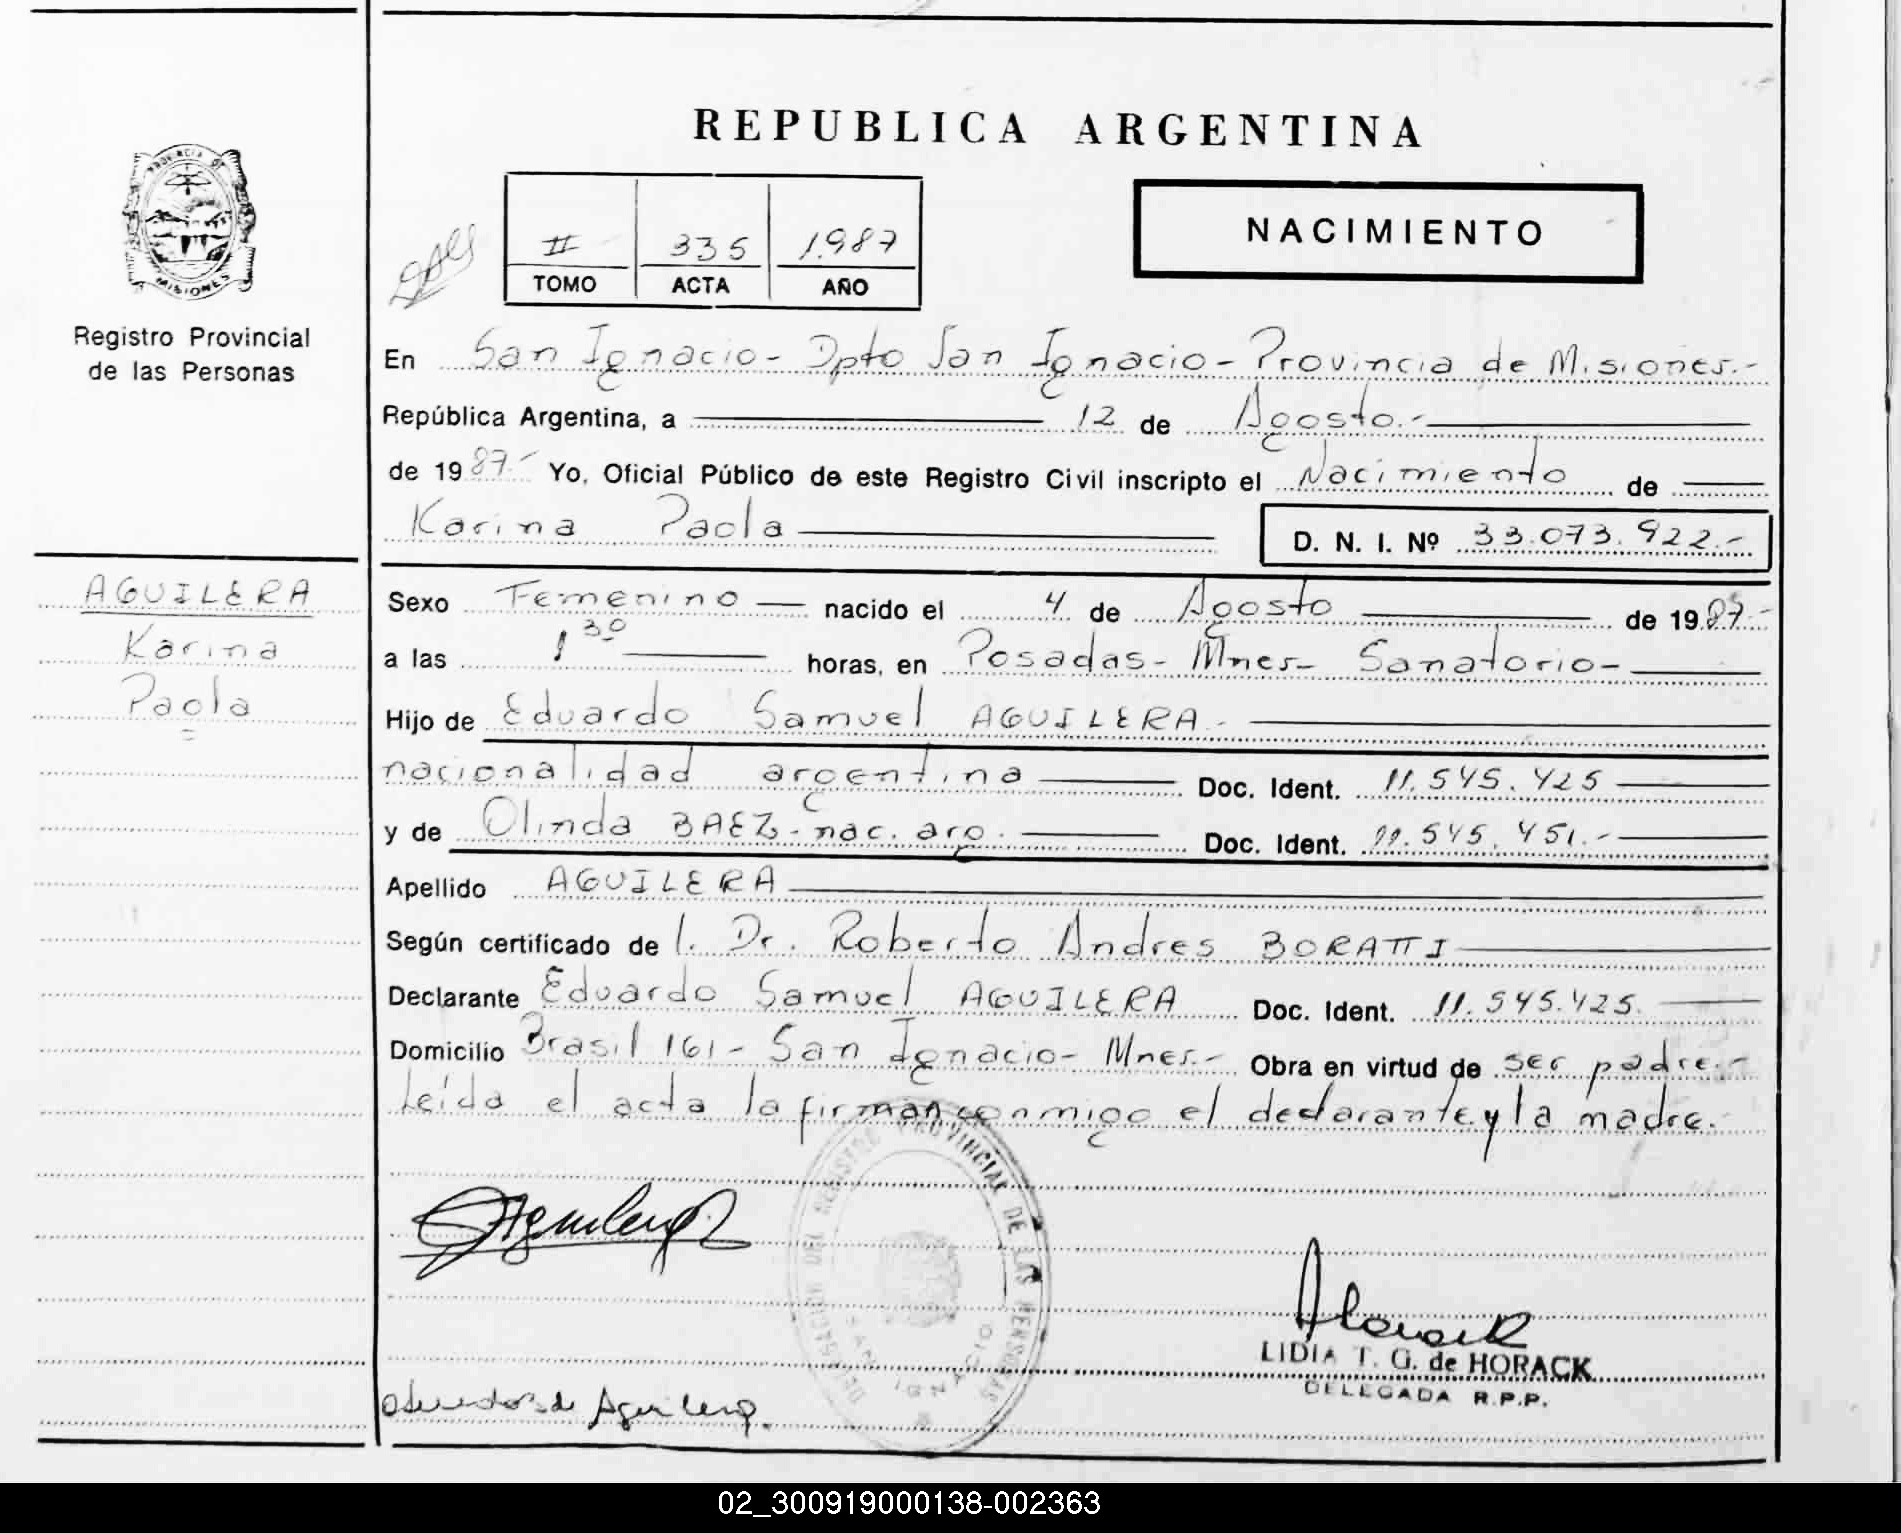 REPUBLICA ARGENTINA
PROVINCIA DE
MISIONES
Registro Provincial
de las Personas
NACIMIENTO
II 335 1.987
TOMO ACTA AÑO
En San Ignacio - Dpto San Ignacio - Provincia de Misiones.-
República Argentina, a 12 de Agosto.-
de 1987.- Yo, Oficial Público de este Registro Civil inscripto el Nacimiento de
Karina Paola
D. N. I. Nº 33.073.922.-
AGUILERA
Karina
Paola
Sexo Femenino nacido el 4 de Agosto de 1987.-
a las 1 30 horas, en Posadas - Mnes - Sanatorio -
Hijo de Eduardo Samuel AGUILERA.-
nacionalidad argentina Doc. Ident. 11.545.425
y de Olinda BAEZ - nac. arg. Doc. Ident. 11.545.451.-
Apellido AGUILERA
Según certificado de l. Dr. Roberto Andres BORATTI
Declarante Eduardo Samuel AGUILERA Doc. Ident. 11.545.425.
Domicilio Brasil 161 - San Ignacio - Mnes.- Obra en virtud de ser padre.-
Leída el acta la firman conmigo el declarante y la madre.-
DELEGACION DEL REGISTRO PROVINCIAL DE LAS PERSONAS
SAN IGNACIO
LIDIA T. G. de HORACK
DELEGADA R.P.P.
de Aguilera.
02_300919000138-002363